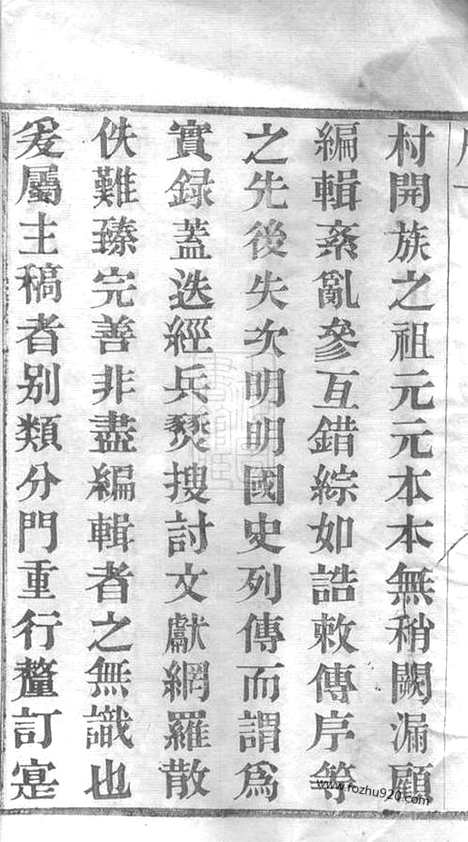 村開族之祖元元本本無稍闕漏顧
編輯紊亂參互錯綜如誥敕傳序等
之先後失次明明國史列傳而謂爲
實録蓋迭經兵燹搜討文獻網羅散
佚難臻完善非盡編輯者之無識也
爰屬主稿者别類分門重行釐訂寔
www.fozhu920.com